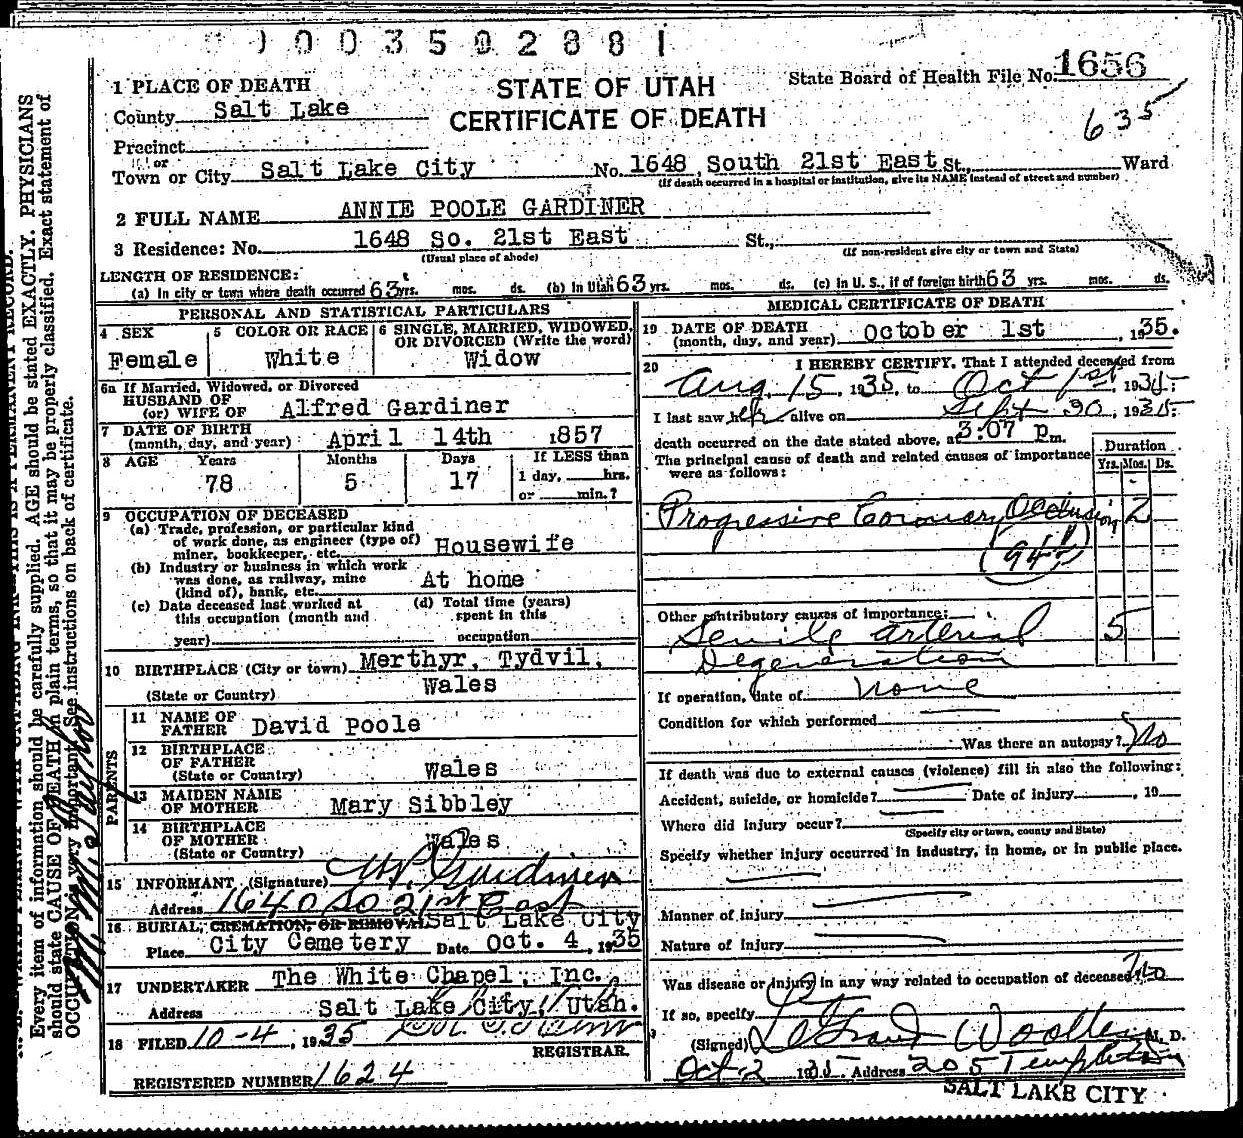 1003502881
STATE OF UTAH
CERTIFICATE OF DEATH
State Board of Health File No. 1656
635
1 PLACE OF DEATH
County Salt Lake
Precinct
or
Town or City Salt Lake City No. 1648 South 21st East St., Ward
(If death occurred in a hospital or institution, give its NAME instead of street and number)
2 FULL NAME ANNIE POOLE GARDINER
3 Residence: No. 1648 So. 21st East St.,
(Usual place of abode) (If non-resident give city or town and State)
LENGTH OF RESIDENCE:
(a) In city or town where death occurred 63 yrs. mos. ds. (b) In Utah 63 yrs. mos. ds. (c) In U. S., if of foreign birth 63 yrs. mos. ds.
PERSONAL AND STATISTICAL PARTICULARS
4 SEX
Female
5 COLOR OR RACE
White
6 SINGLE, MARRIED, WIDOWED, OR DIVORCED (Write the word)
Widow
6a If Married, Widowed, or Divorced
HUSBAND OF
(or) WIFE OF Alfred Gardiner
7 DATE OF BIRTH
(month, day, and year) April 14th 1857
8 AGE Years Months Days If LESS than
78 5 17 1 day, hrs.
or min.?
9 OCCUPATION OF DECEASED
(a) Trade, profession, or particular kind
of work done, as engineer (type of)
miner, bookkeeper, etc. Housewife
(b) Industry or business in which work
was done, as railway, mine
(kind of), bank, etc. At home
(c) Date deceased last worked at
this occupation (month and
year)
(d) Total time (years)
spent in this
occupation
10 BIRTHPLACE (City or town) Merthyr, Tydvil,
(State or Country) Wales
PARENTS
11 NAME OF
FATHER David Poole
12 BIRTHPLACE
OF FATHER
(State or Country) Wales
13 MAIDEN NAME
OF MOTHER Mary Sibbley
14 BIRTHPLACE
OF MOTHER
(State or Country) Wales
15 INFORMANT (Signature) Gardiner
Address 1640 So 21st East
16 BURIAL, CREMATION, OR REMOVAL Salt Lake City
Place City Cemetery Date Oct. 4, 1935
17 UNDERTAKER The White Chapel, Inc.
Address Salt Lake City, Utah.
18 FILED 10-4, 1935
REGISTRAR.
REGISTERED NUMBER 1624
MEDICAL CERTIFICATE OF DEATH
19 DATE OF DEATH
(month, day, and year) October 1st, 1935.
20 I HEREBY CERTIFY, That I attended deceased from
Aug. 15 1935, to Oct 1st, 1935.
I last saw her alive on Sept 30, 1935.
death occurred on the date stated above, at 3:07 P.m.
The principal cause of death and related causes of importance
were as follows:
Duration
Yrs. Mos. Ds.
Progressive Coronary Occlusion 2
Other contributory causes of importance:
Senile arterial 5
Degeneration
If operation, date of none
Condition for which performed
Was there an autopsy? No
If death was due to external causes (violence) fill in also the following:
Accident, suicide, or homicide? Date of injury , 19
Where did injury occur?
(Specify city or town, county and State)
Specify whether injury occurred in industry, in home, or in public place.
Manner of Injury
Nature of Injury
Was disease or injury in any way related to occupation of deceased? No
If so, specify
(Signed) LeGrand Woolley M. D.
Oct-2 1935 Address 205 Templeton
SALT LAKE CITY
Every item of information should be carefully supplied. AGE should be stated EXACTLY. PHYSICIANS
should state CAUSE OF DEATH in plain terms, so that it may be properly classified. Exact statement of
OCCUPATION is very important. See instructions on back of certificate.